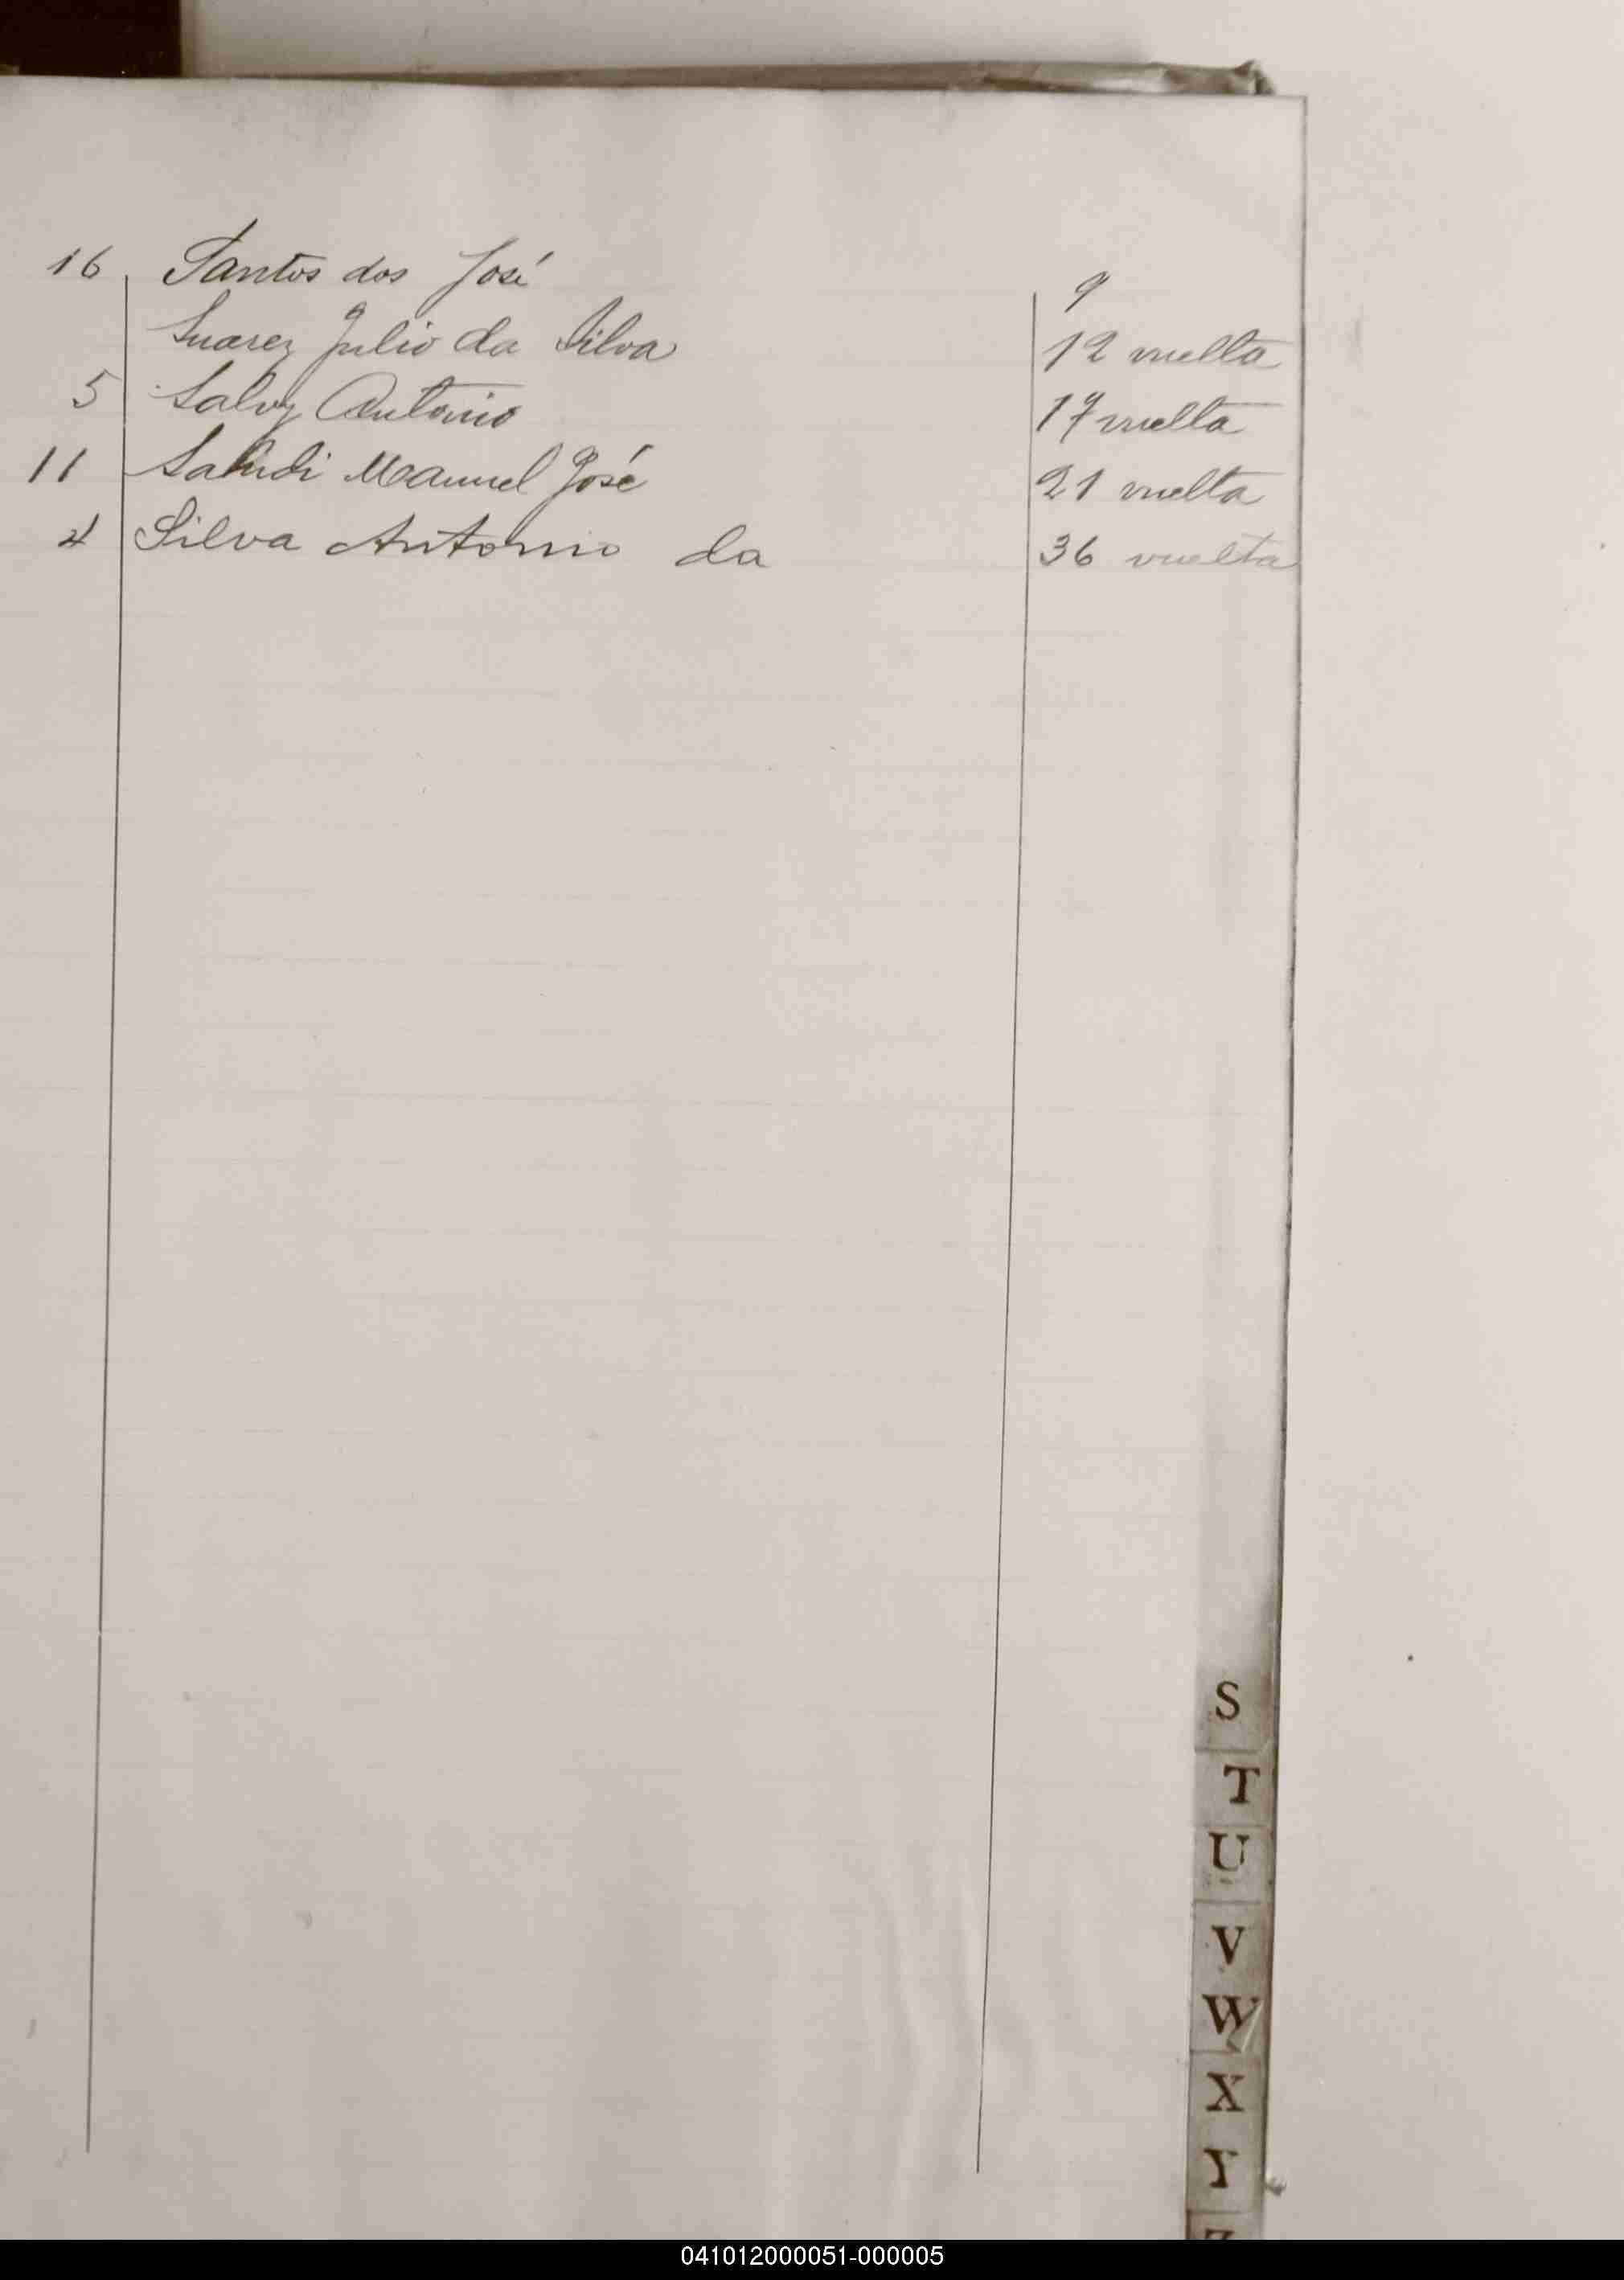 16 Santos dos José 9
Suarez Julio da Silva 12 vuelta
5 Antonio 17 vuelta
11 Manuel José 21 vuelta
4 Silva Antonio da 36 vuelta
S
T
U
V
W
X
Y
Z
041012000051-000005